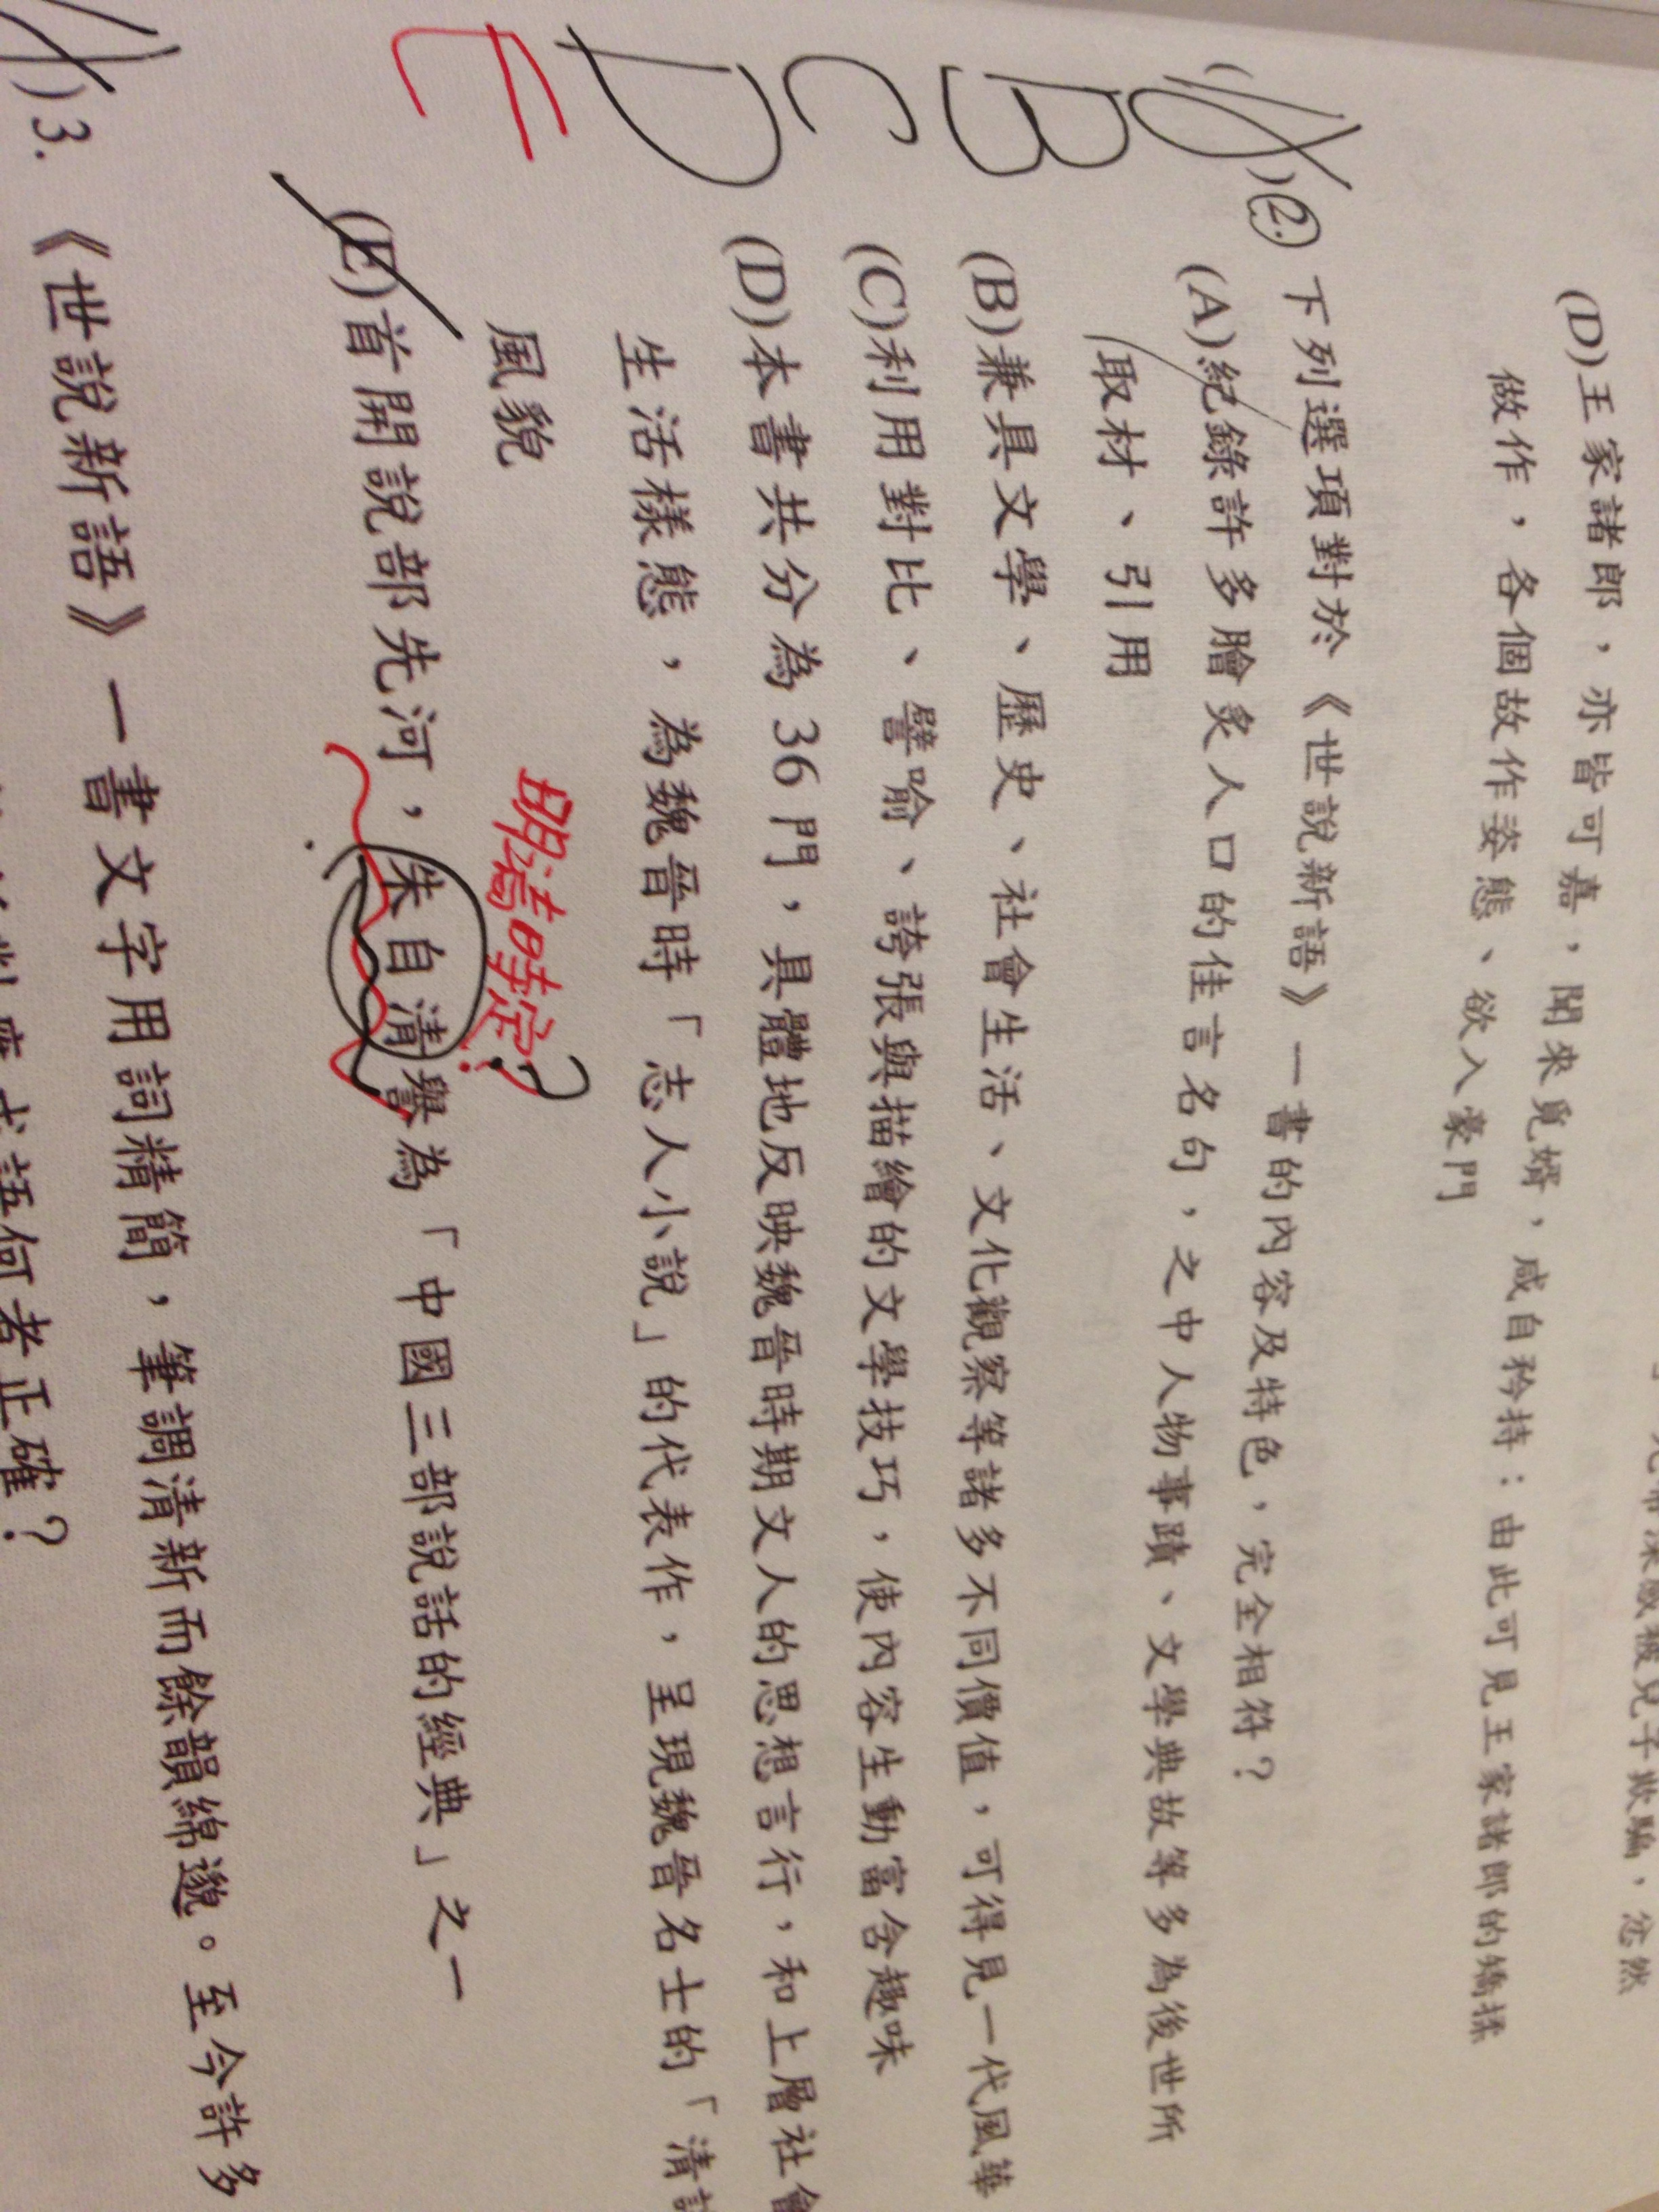 兒子欺騙，忿然
(D)王家諸郎，亦皆可嘉，聞來覓婿，咸自矜持：由此可見王家諸郎的矯揉
做作，各個故作姿態、欲入豪門
( A )②. 下列選項對於《世說新語》一書的內容及特色，完全相符？
B
C
D
E
(A)紀錄許多膾炙人口的佳言名句，之中人物事蹟、文學典故等多為後世所
取材、引用
(B)兼具文學、歷史、社會生活、文化觀察等諸多不同價值，可得見一代風華
(C)利用對比、譬喻、誇張與描繪的文學技巧，使內容生動富含趣味
(D)本書共分為 36 門，具體地反映魏晉時期文人的思想言行，和上層社會
生活樣態，為魏晉時「志人小說」的代表作，呈現魏晉名士的「清談
風貌
明清時定?
(E)首開說部先河，朱自清譽為「中國三部說話的經典」之一
)3. 《世說新語》一書文字用詞精簡，筆調清新而餘韻綿邈。至今許多
成語何者正確？